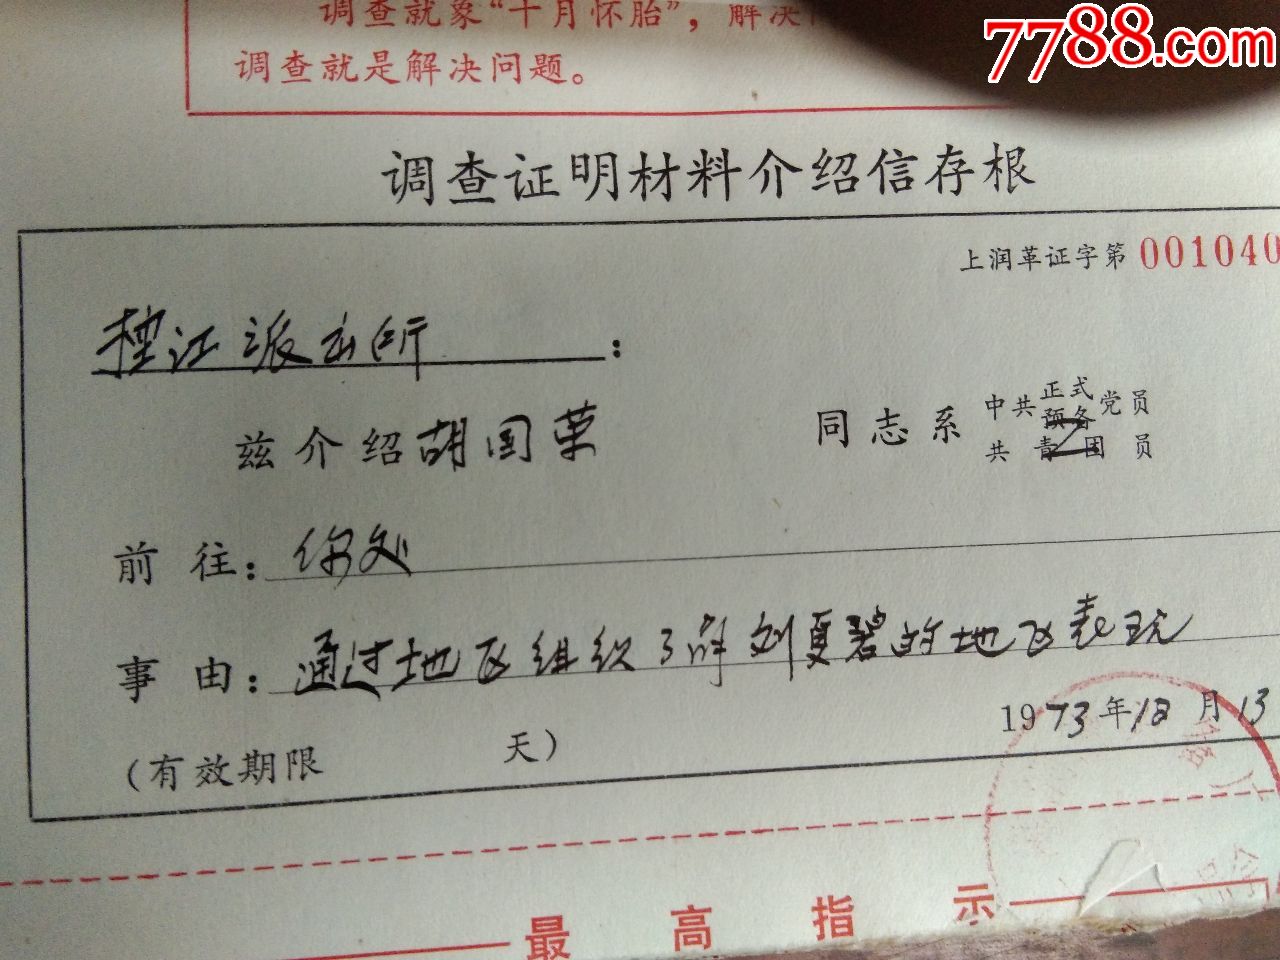 7788.com
调查就象“十月怀胎”，解决
调查就是解决问题。
调查证明材料介绍信存根
上润革证字第 001040
控江派出所：
兹介绍胡国荣 同志系 中共正式预备党员
共青团员
前往：你处
事由：通过地区组织了解刘夏碧的地区表现
(有效期限 天) 1973年12月13
最高指示